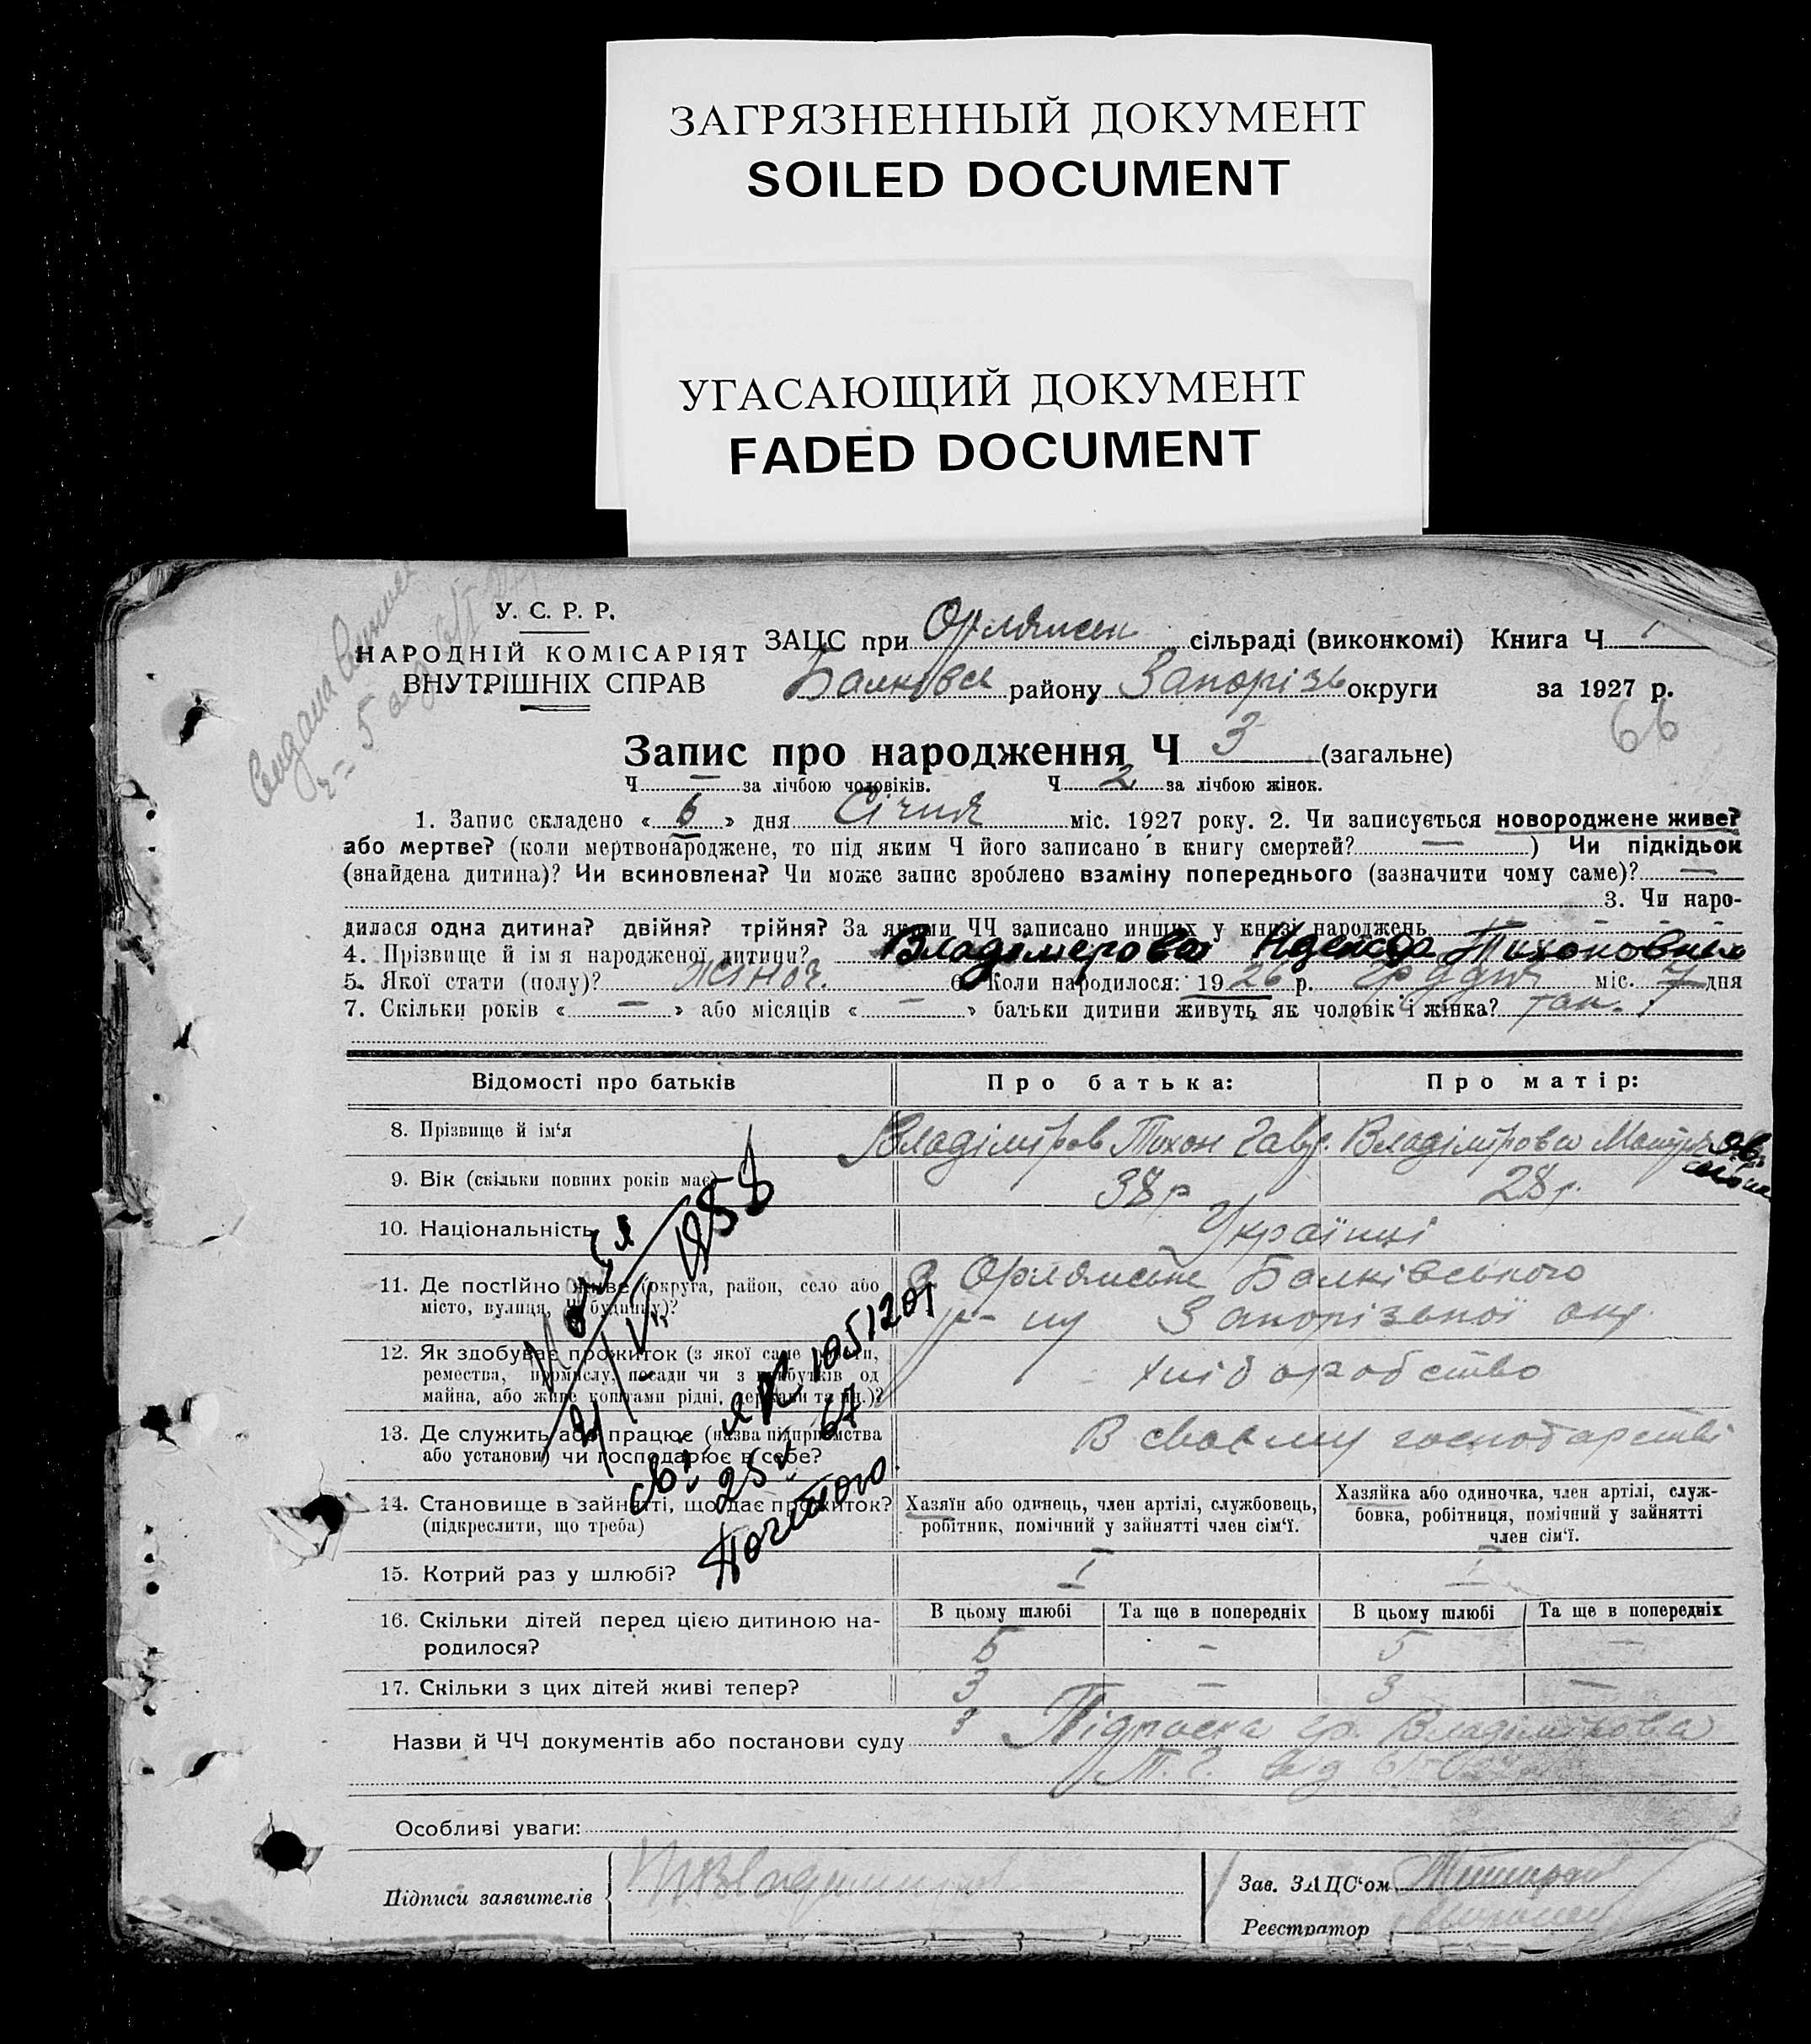 ЗАГРЯЗНЕННЫЙ ДОКУМЕНТ
SOILED DOCUMENT
УГАСАЮЩИЙ ДОКУМЕНТ
FADED DOCUMENT
У. С. Р. Р.
НАРОДНІЙ КОМІСАРІЯТ
ВНУТРІШНІХ СПРАВ
ЗАЦС при Орлянськ сільраді (виконкомі) Книга Ч 1
Балківсь району, Запорізь округи за 1927 р.
66
Запис про народження Ч 3 (загальне)
Ч — за лічбою чоловіків. Ч 2 за лічбою жінок.
1. Запис складено « 6 » дня Січня міс. 1927 року. 2. Чи записується новороджене живе?
або мертве? (коли мертвонароджене, то під яким Ч його записано в книгу смертей? — ) Чи підкідьок
(знайдена дитина)? Чи всиновлена? Чи може запис зроблено взаміну попереднього (зазначити чому саме)? —
3. Чи наро-
дилася одна дитина? двійня? трійня? За якими ЧЧ записано инших у книзі народжень - - -
4. Прізвище й ім я народженої дитини? Тихоновна
5. Якої стати (полу)? жіноч. 6. Коли народилося: 1926 р. Грудня міс. 7 дня
7. Скільки років « — » або місяців « — » батьки дитини живуть як чоловік і жінка? так.
Відомості про батьків Про батька: Про матір:
8. Прізвище й ім'я Владіміров Тихон Гавр. Владімірова
9. Вік (скільки повних років має) 38 р 28 р.
10. Національність Українці
11. Де постійно живе (округа, район, село або місто, вулиця, Ч будинку)? Орлянське Балківського
р-ну Запорізької окр.
12. Як здобуває прожиток (з якої саме роботи,
ремества, промислу, посади чи з прибутків од
майна, або живе коштами рідні, держави та ин.)? хліборобство
13. Де служить або працює (назва підприємства
або установи) чи господарює в себе? В своєму господарстві
14. Становище в зайнятті, що дає прожиток?
(підкреслити, що треба)
Хазяїн або одинець, член артілі, службовець,
робітник, помічний у зайнятті член сім'ї.
Хазяйка або одиночка, член артілі, служ-
бовка, робітниця, помічний у зайнятті
член сім'ї.
15. Котрий раз у шлюбі? I I
16. Скільки дітей перед цією дитиною на-
родилося?
В цьому шлюбі Та ще в попередніх В цьому шлюбі Та ще в попередніх
5 — 5 —
17. Скільки з цих дітей живі тепер? 3 — 3 —
Назви й ЧЧ документів або постанови суду Підписка гр. Владімірова
Т. Г. від
Особливі уваги:
Підписи заявителів
Зав. ЗАЦС'ом
Реєстратор